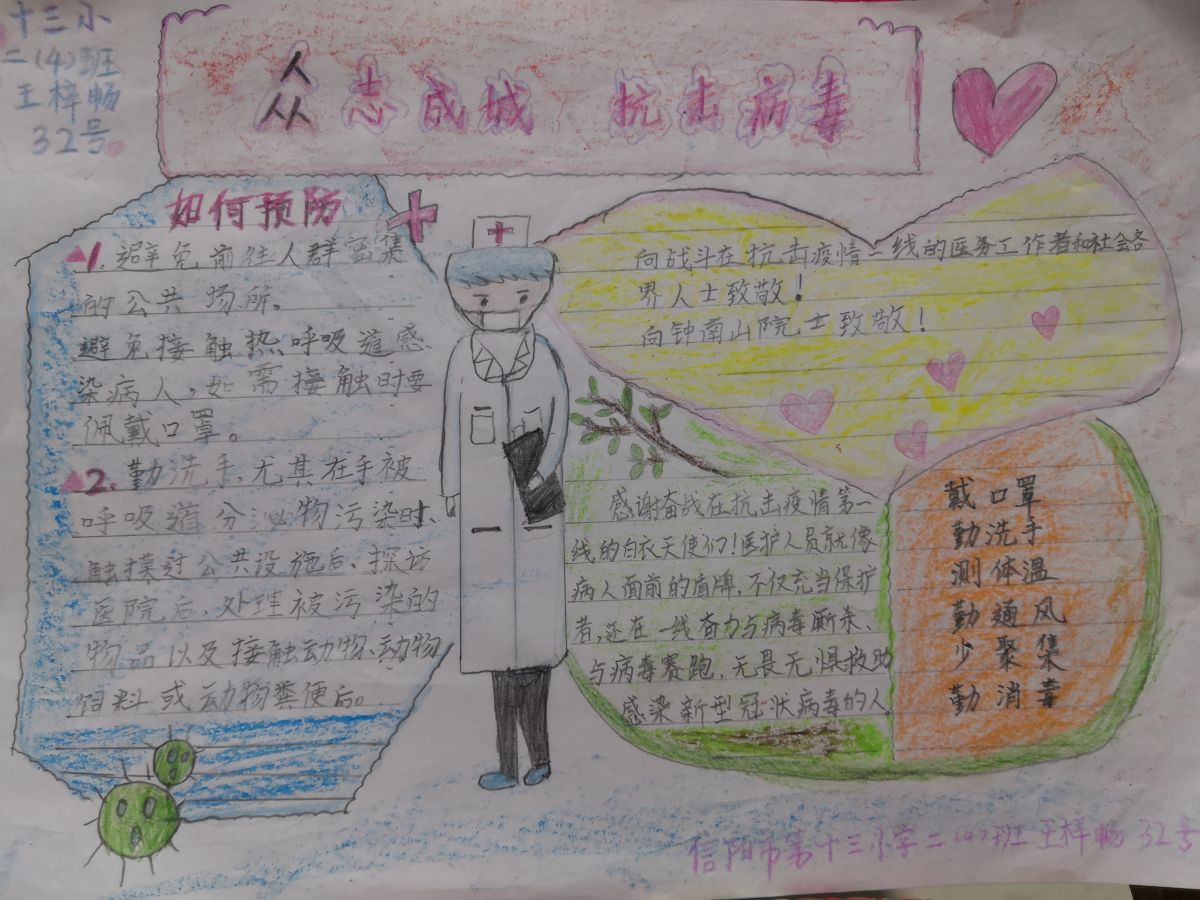 十三小
二(4)班
王梓畅
32号
众志成城 抗击病毒
如何预防
1.避免前往人群密集
的公共场所。
避免接触热呼吸道感
染病人，如需接触时要
佩戴口罩。
2.勤洗手，尤其在手被
呼吸道分泌物污染时、
触摸过公共设施后、探访
医院后、处理被污染的
物品以及接触动物、动物
饲料或动物粪便后。
向战斗在抗击疫情一线的医务工作者和社会各
界人士致敬！
向钟南山院士致敬！
感谢奋战在抗击疫情第一
线的白衣天使们！医护人员就像
病人面前的盾牌，不仅充当保护
者，还在一线奋力与病毒厮杀、
与病毒赛跑，无畏无惧救助
感染新型冠状病毒的人
戴口罩
勤洗手
测体温
勤通风
少聚集
勤消毒
信阳市第十三小学二(4)班王梓畅32号